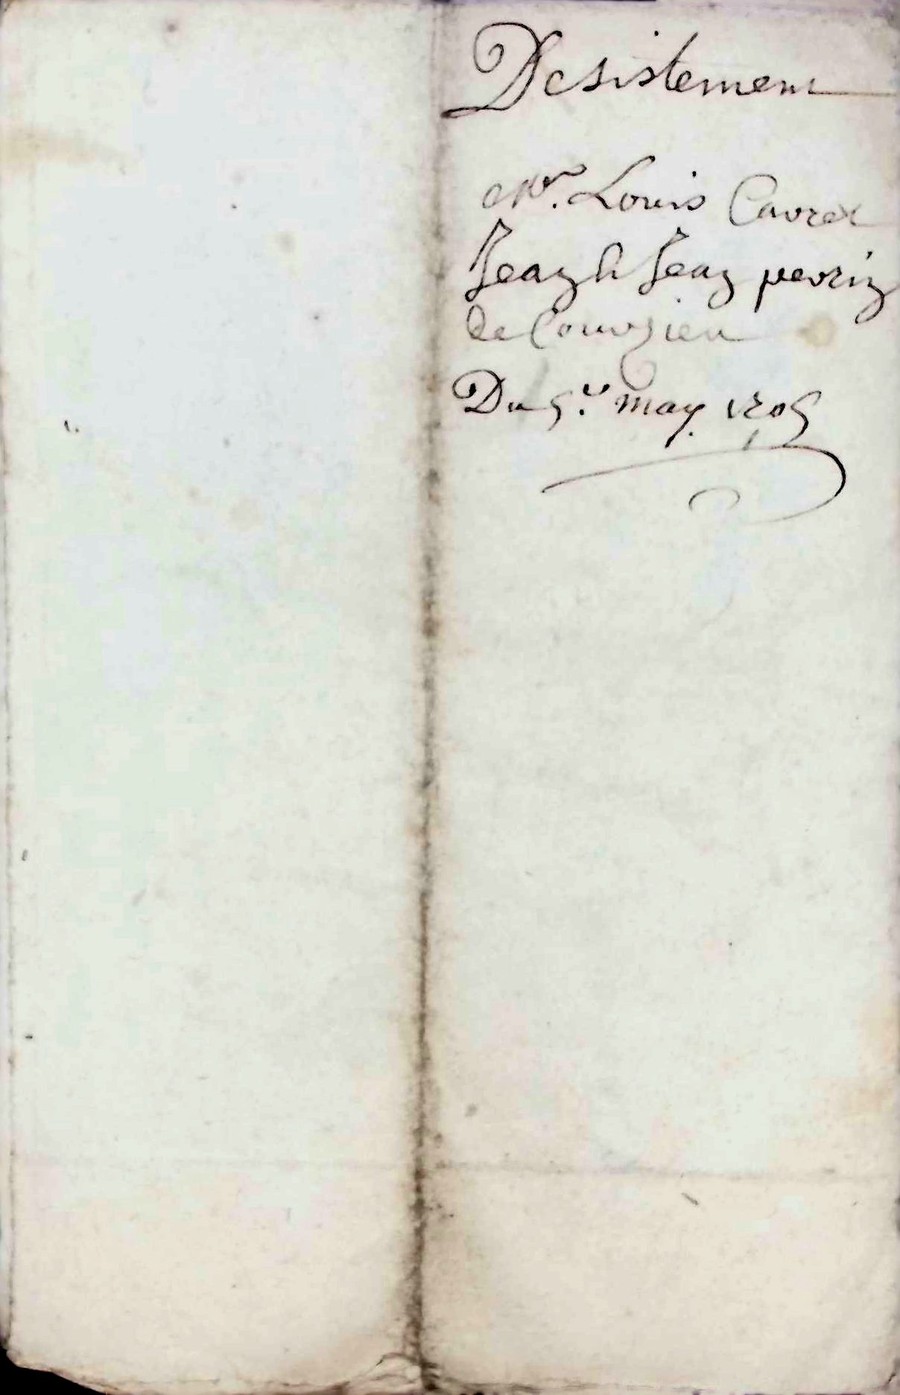 Desistement
Mrs. Louis Cavret
Jean h Jean perrin
de Courzieu
Du 5.e may. 1705